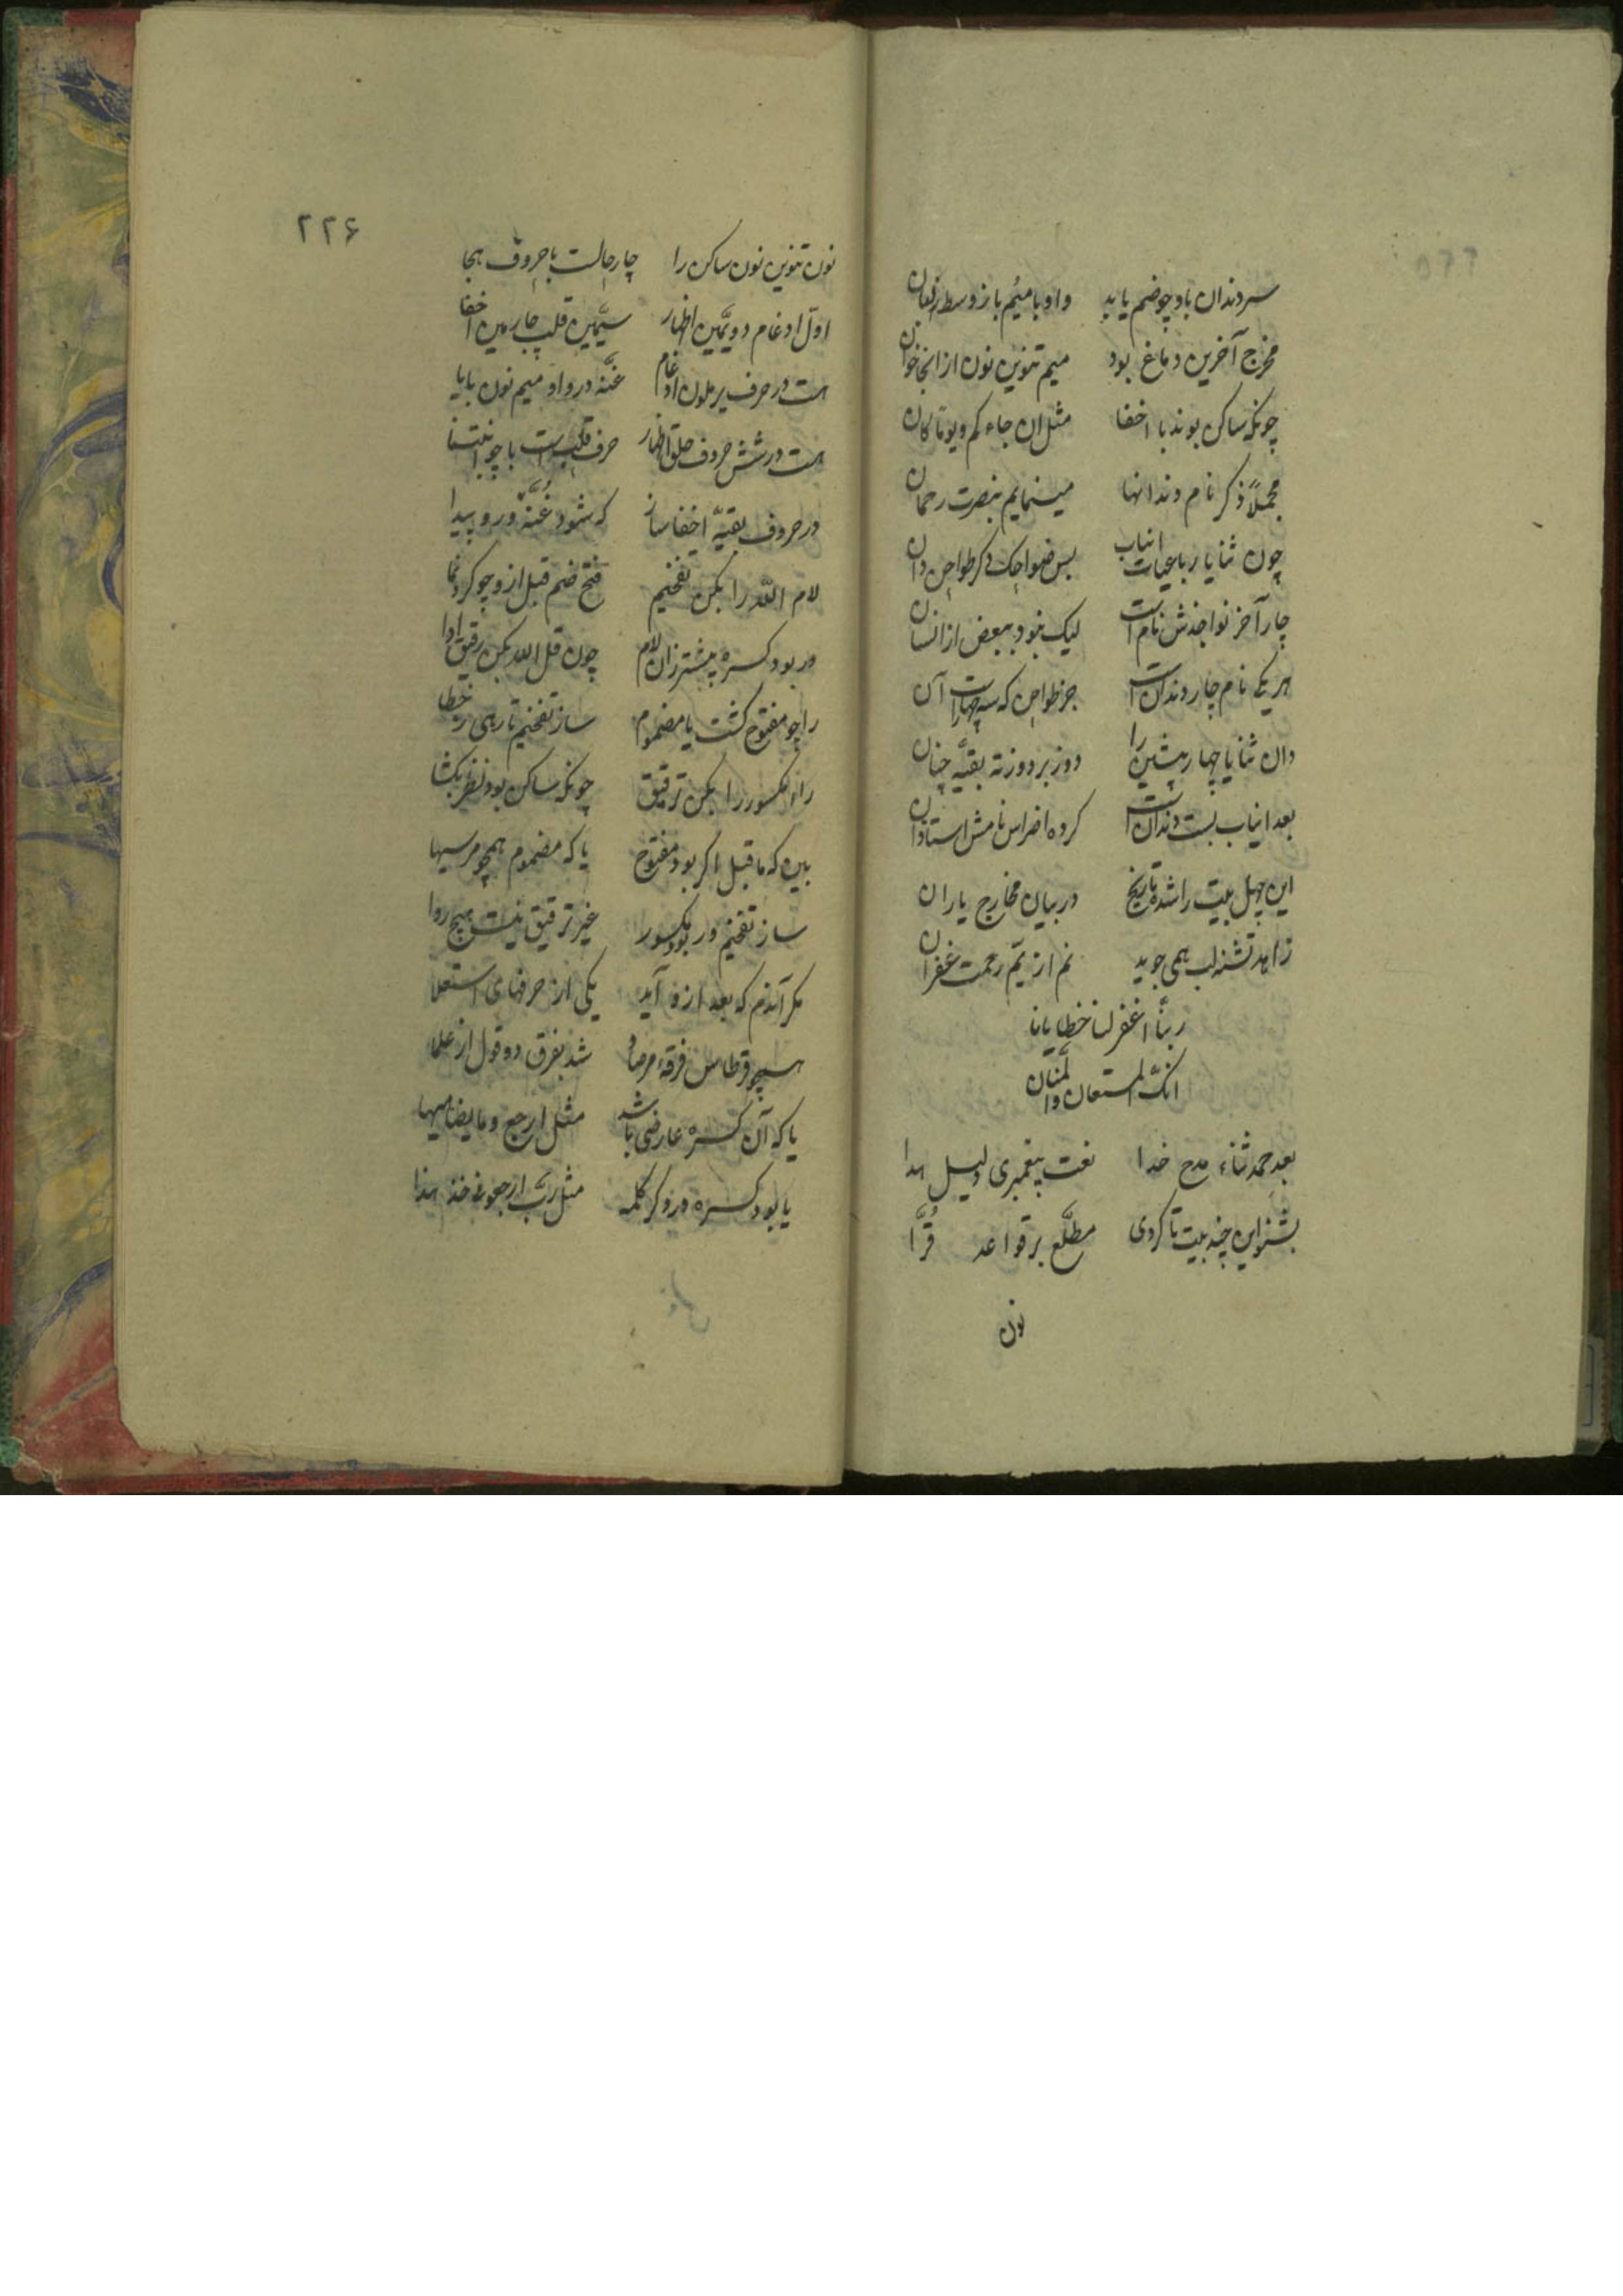 سردندان باو چو ضم یابد واو با میم باز وسط لفعان
مخرج آخرین دماغ بود میم تنوین نون از انجا خوان
چونکه ساکن بوند با اخفا مثل ان جاءکم ویوتا کان
مجملاً ذکر نام دندانها مینمایم بنصرت رحمان
چون ثنایا رباعیات انیاب بس ضواحک دکر طواحن دان
چار آخر نواجذش نام است لیک نبود ببعض از انسان
هر یکی نام چار دندان است جز طواحن که سه چهار است آن
دان ثنایا چهار پیشین را دو زبر دو زته بقیّه چنان
بعد انیاب بست دندان است کرده اضراس نامش استادان
این چهل بیت را شده تاریخ در بیان مخارج یاران
زاهد تشنه لب همی جوید نم از یمّ رحمت غفران
ربّنا اغفر لنا خطایانا
انک المستعان والمنّان
بعد حمد ثناء مدح خدا نعت پیغمبری دلیل هدا
بشنو این چند بیت تا کردی مطلّع بر قواعد قُرّا
نون
۲۲۶
نون تنوین نون ساکن را چار حالست با حروف هجا
اوّل ادغام دویّمین اظهار سیّمین قلب چارمین اخفا
هست در حرف یرملون ادغام غنّه در واو میم نون با یا
هست در شش حروف حلق اظهار حرف قلب است با چو انبتنا
در حروف بقیّه اخفا ساز که شود غُنّه در و پیدا
لام اللّه را بکن تفخیم فتح ضم قبل ازو چو کرد نما
ور بود کسره پیشتر زان لام چون قل الله بکن رقیق ادا
را چو مفتوح کشت یا مضموم ساز تفخیم تا رهی ز خطا
راء مکسور را بکن ترقیق چونکه ساکن بود نظر بکشا
بین که ماقبل اکر بود مفتوح یا که مضموم همچو مرسیها
ساز تفخیم ور بود مکسور غیر ترقیق نیست هیچ روا
مکر آندم که بعد ازو آید یکی از حرفهای استعلا
همچو قرطاس فرقة مرصاد شد بفرق دو قول از علما
یا که آن کسره عارضی باشد مثل ارجع وما یضاهیها
یا بود کسره در دکر کلمه مثل ربّ ارجعون خذ هذا